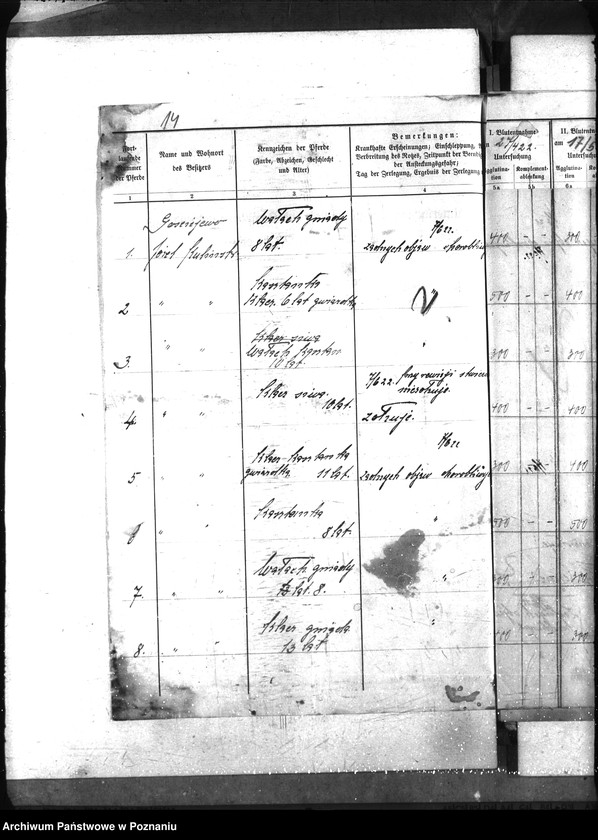 14
laufende
Nummer
der Pferde
Name und Wohnort
des Besitzers
Kennzeichen der Pferde
(Farbe, Abzeichen, Geschlecht
und Alter)
Bemerkungen:
Krankhafte Erscheinungen; Einschleppung,
Verbreitung des Rotzes, Zeitpunkt der
der Ansteckungsgefahr;
Tag der Zerlegung, Ergebnis der Zerlegung
I. Blutentnahme
27/4 22.
Untersuchung
Agglutina-
tion
Komplement-
ablenkung
II. Blutentn
am 17/5
Untersuchu
Agglutina-
tion
1 2 3 4 5a 5b 6a
1. Józef
Wałach gniady
8 lat.
7/6 22.
żadnych objaw chorobliwych
400 - - 300
2 " "
Kasztanka
Klacz. 6 lat gwiazdka
"
500 - - 400
3. " "
Klacz siwa
Wałach kasztan
10 lat
"
300 - - 300
4. " "
Klacz siwa.
10 lat.
7/6 22. przy rewizji
żołzuje.
400 - - 400
5 " "
Klacz-Kasztanka
gwiazdka 11 lat.
7/6 22
żadnych objaw chorobliwych
300 - - 400
6 " "
Kasztanka
8 lat.
"
500 - - 500
7. " "
Wałach gniady
lat. 8.
"
- - 300
8. " "
Klacz gniada
13 lat
"
- - 300
Archiwum Państwowe w Poznaniu